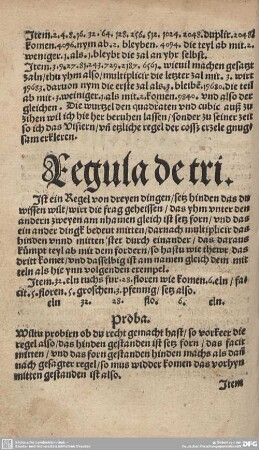 Item.2.4.8.16.32.64.128.256.512.1024.2048.duplir.2048
komen.4096.nym ab.2.bleyben.4094.die teyl ab mit.2.
weniger.1.als.1.bleybt die zal an yhr selbst.
Item.3.9.27.81.243.729.2187.6561.wieuil machen gesatzt
zaln/thu yhm also/multiplicir die letzer zal mit.3.wirt
19683.daruon nym die erste zal als.3.bleibē.19680.die teil
ab mit.3.weiniger.1.als mit.2.komen.9840.vnd also der
gleichen. Die wurtzel den quadraten vnd cubic auß zu
zihen wil ich hie her beruhen lassen/sonder zu seiner zeit
so ich das Visirn/vn̄ etzliche regel der coss erzele gnug
sam erkleren.
Regula de tri.
Ist ein Regel von dreyen dingen/setz hinden das du
wissen wilt/wirt die frag geheissen/das yhm vnter den
andern zweyen am nhamen gleich ist setz forn/vnd das
ein ander dingk bedeut mitten/darnach multiplicir das
hinden vnnd mitten ster durch einander/das daraus
kümpt teyl ab mit dem fordern/so hastu wie thewr das
dritt komet/vnd dasselbig ist am namen gleich dem mit
teln als hie ynn volgenden exempel.
Item.32.eln tuchs fur.28.floren wie komen.6.eln/fa
cit.5.floren.5.groschen.3.pfennig/setz also.
eln 32. 28. flo. 6. eln.
Proba.
Wiltu probirn ob du recht gemacht hast/so vorkere die
regel also/das hinden gestanden ist setz forn/das facit
mitten/vnd das forn gestanden hinden machs als dan
nach gesagter regel/so mus widder komen das vorhyn
mitten gestanden ist also.
Item